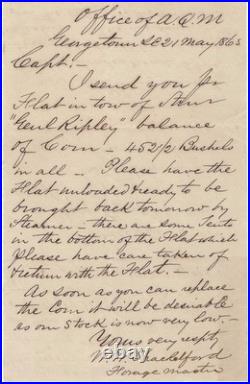 Office of A.Q.M
Georgetown SC 21 May 1863
Capt,-
I send you per
Flat in tow of Steamr
"Genl Ripley" balance
of Corn - 452 1/2 Bushels
in all - Please have the
Flat unloaded ready to be
brought back tomorrow by
Steamer - there are some Tents
in the bottom of the Flat which
please have care taken of
& return with the Flat.-
As soon as you can replace
the Corn it will be desirable
as our Stock is now very low.-
Yours very respty
W. Shackelford
Forage master